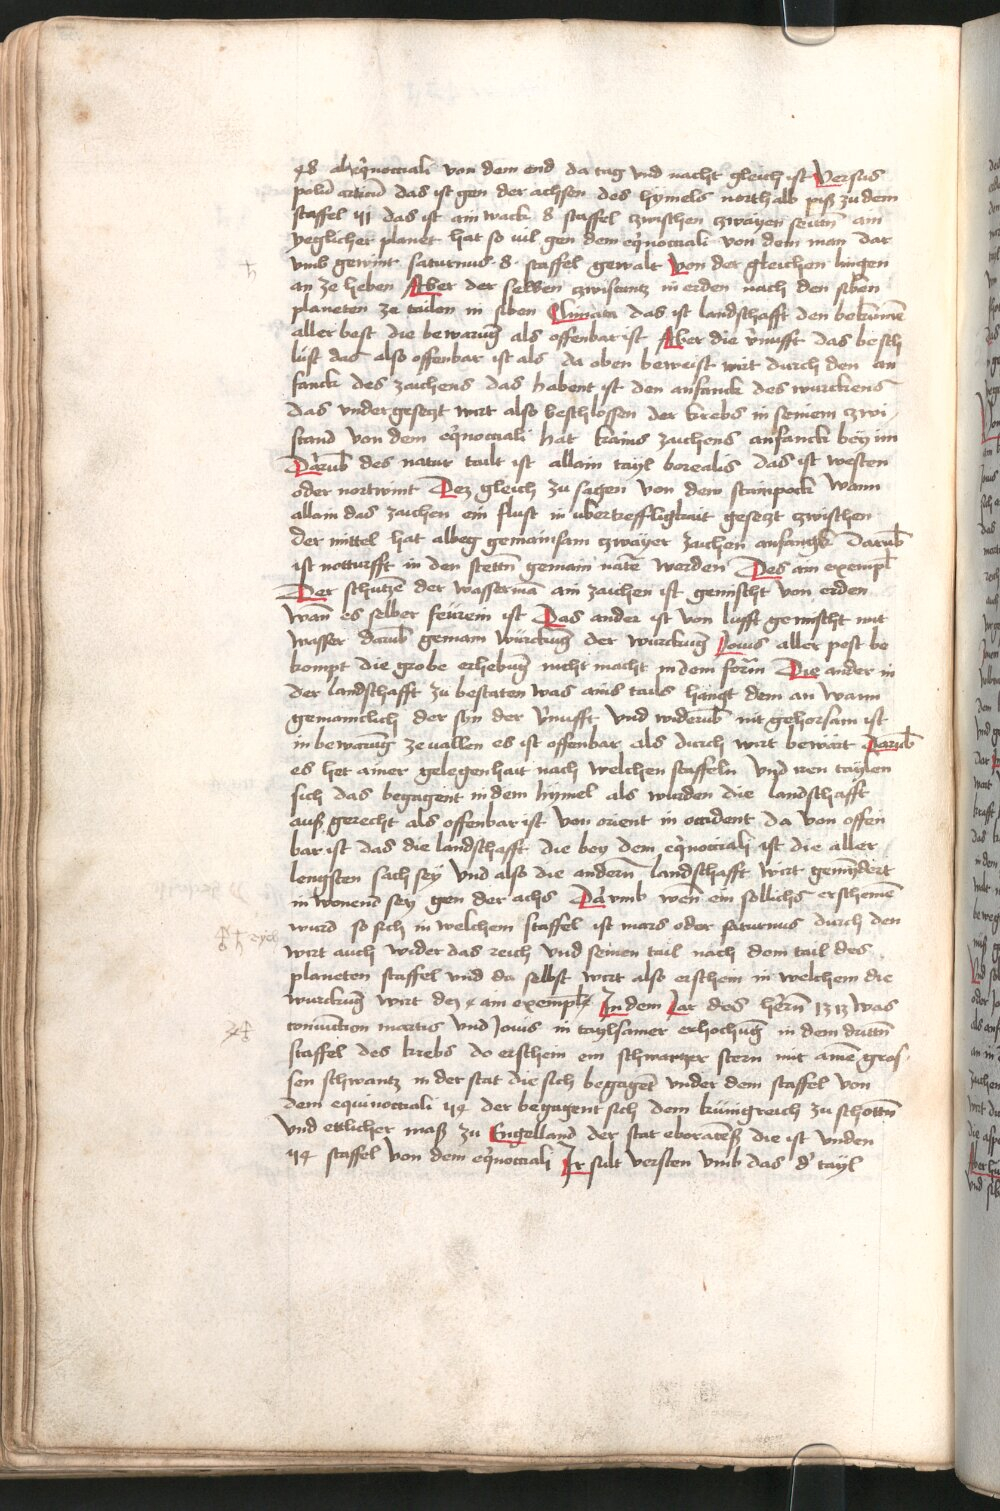 48 ab eq̃noctiali von dem end da tag vnd nacht gleich ist Versus
polũ articũ das ist gen der achsen des hymels northalb piß zu dem
staffel 41 das ist am wack 8 staffel zwischen zwayen seittñ ain
yeglicher planet hat so vil gen dem eq̃noctiali von dem man dar
vmb gewint saturnus · 8 · staffel gewalt Von der gleichen hingen
♄
an ze heben Aber der selben zwistantz in erden nach den siben
planeten ze tailen in siben Climata das ist landschafft den bekũmẽ
aller best die bewarũg als offenbar ist Aber die v̉nufft das besch
lust das also offenbar ist als da oben beweist wirt durch den an
fanck des zaichens das habent ist den anfanck des wurckens
das vnder gesetzt wirt also beschlossen der krebs in seinem zwi
stand von dem eq̃noctiali hat kains zaichens anfanck bey im
Darũb des natur tailt ist allain tayl borealis das ist westen
oder nortwint Dez gleich zu sagen von dem stainpock wann
allain das zaichen ein flust in vbertreffligkait gesetzt zwischen
der mittel hat albeg gemainsam zwayer zaichen anfangk darũb
ist notturfft in den stettñ gemain natẽ werden Des ain exempl
Der schutze der wassermã ain zaichen ist gemischt von erden
wañ es selber feürein ist Das ander ist von lufft gemischt mit
wasser darũb gemain würckũg der wurckũg Jouis aller post be
kompt die grobe erhebũg nicht macht in dem forñ Die ander in
der landschafft zu bestaten was ains tails hangt dem an wann
gemainclich der syn der v̉nufft vnd widerũb nit gehorsam ist
in bewarũg ze uallen es ist offenbar als durch wirt bewärt Darũb
es het ainer gelegenhait nach welchen staffeln vnd iren taylen
sich das begagent in dem hymel als wurden die landschafft
auß gerecht als offenbar ist von orient in occident da von offen
bar ist das die landschafft die bey dem eq̃noctiali ist die aller
lengsten sach sey vnd also die andern landschafft wirt gemỹdert
in wonend sey gen der achs Dar vmb wen̄ ein sollichs erscheinẽ
wurd so sich in welchem staffel ist mars oder saturnus durch den
wirt auch wider das reich vnd seinen tail nach dem tail des
planeten staffel vnd da selbst wirt also erschein in welchem die
wurckũg wirt dez ain exempl In dem Jar des herñ 1313 was
coniunction martis vnd Jouis in taylsamer erhochũg in dem drittñ
staffel des krebs do erschein ein schwartzer stern mit ainẽ gros
sen schwantz in der stat die sich begagẽt vnder dem staffel von
dem equinoctiali 44 der begagent sich dem künigreich zu schottñ
vnd ettlicher maß zu Engelland der stat eboracẽß die ist vnden
44 staffel von dem eq̃noctiali Ir sult versten vmb das d̉ tayl